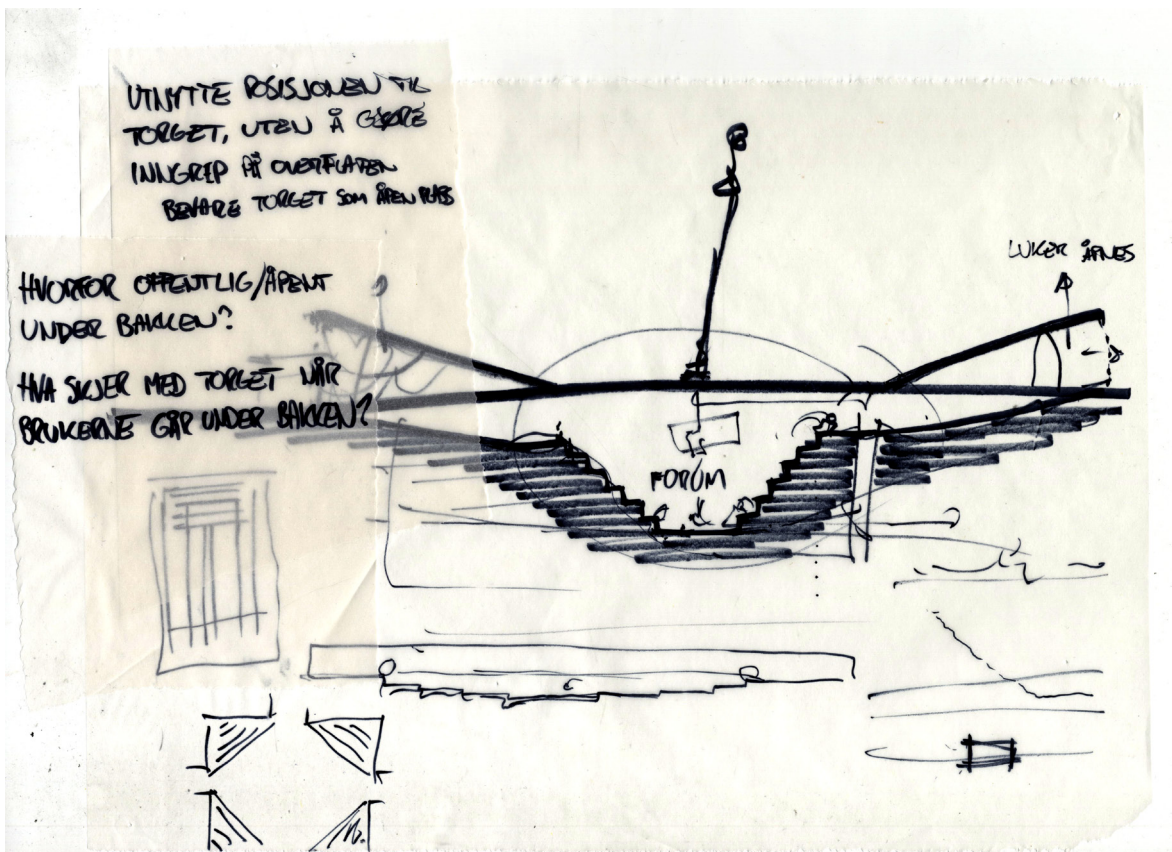 UTNYTTE POSISJONEN TIL
TORGET, UTEN Å GJØRE
INNGREP PÅ OVERFLATEN
BEVARE TORGET SOM ÅPEN PLASS
HVORFOR OFFENTLIG/ÅPENT
UNDER BAKKEN?
HVA SKJER MED TORGET NÅR
BRUKERNE GÅR UNDER BAKKEN?
LUKER ÅPNES
FORUM